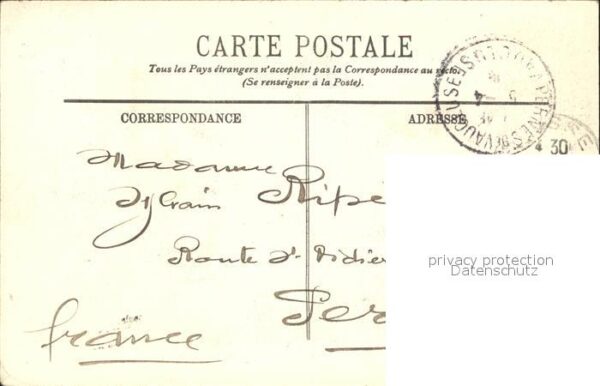 CARTE POSTALE
Tous les Pays étrangers n'acceptent pas la Correspondance au recto.
(Se renseigner à la Poste).
CORRESPONDANCE
ADRESSE
VAUCLUSE
30
Madame
Sylvain Ripe
Route St Didier
Per
France
privacy protection
Datenschutz